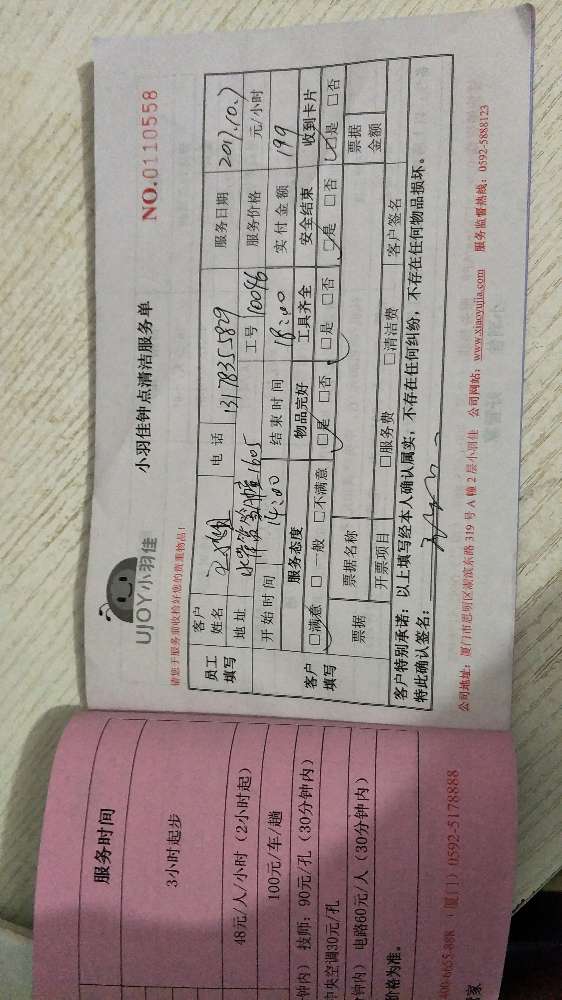 UJOY小羽佳
小羽佳钟点清洁服务单
NO.0110558
请您于服务前收检好您的贵重物品!
员工填写
客户姓名
电话 13178355589
服务日期 2017.10.7
地址 1605
工号 10096
服务价格 元/小时
开始时间 14:00
结束时间 18:00
实付金额 199
客户填写
服务态度 物品完好 工具齐全 安全结束 收到卡片
□满意 □一般 □不满意 □是 □否 □是 □否 □是 □否 □是 □否
票据
票据名称
票据金额
开票项目 □服务费 □清洁费
客户签名
客户特别承诺:以上填写经本人确认属实,不存在任何纠纷,不存在任何物品损坏。
特此确认签名:
公司地址:厦门市思明区湖滨东路319号A幢2层小羽佳 公司网站:www.xiaoyujia.com 服务监督热线:0592-5888123
服务时间
3小时起步
48元/人/小时(2小时起)
100元/车/趟
钟内) 技师:90元/孔(30分钟内)
中央空调30元/孔
钟内) 电路60元/人(30分钟内)
价格为准。
(厦门)0592-5178888